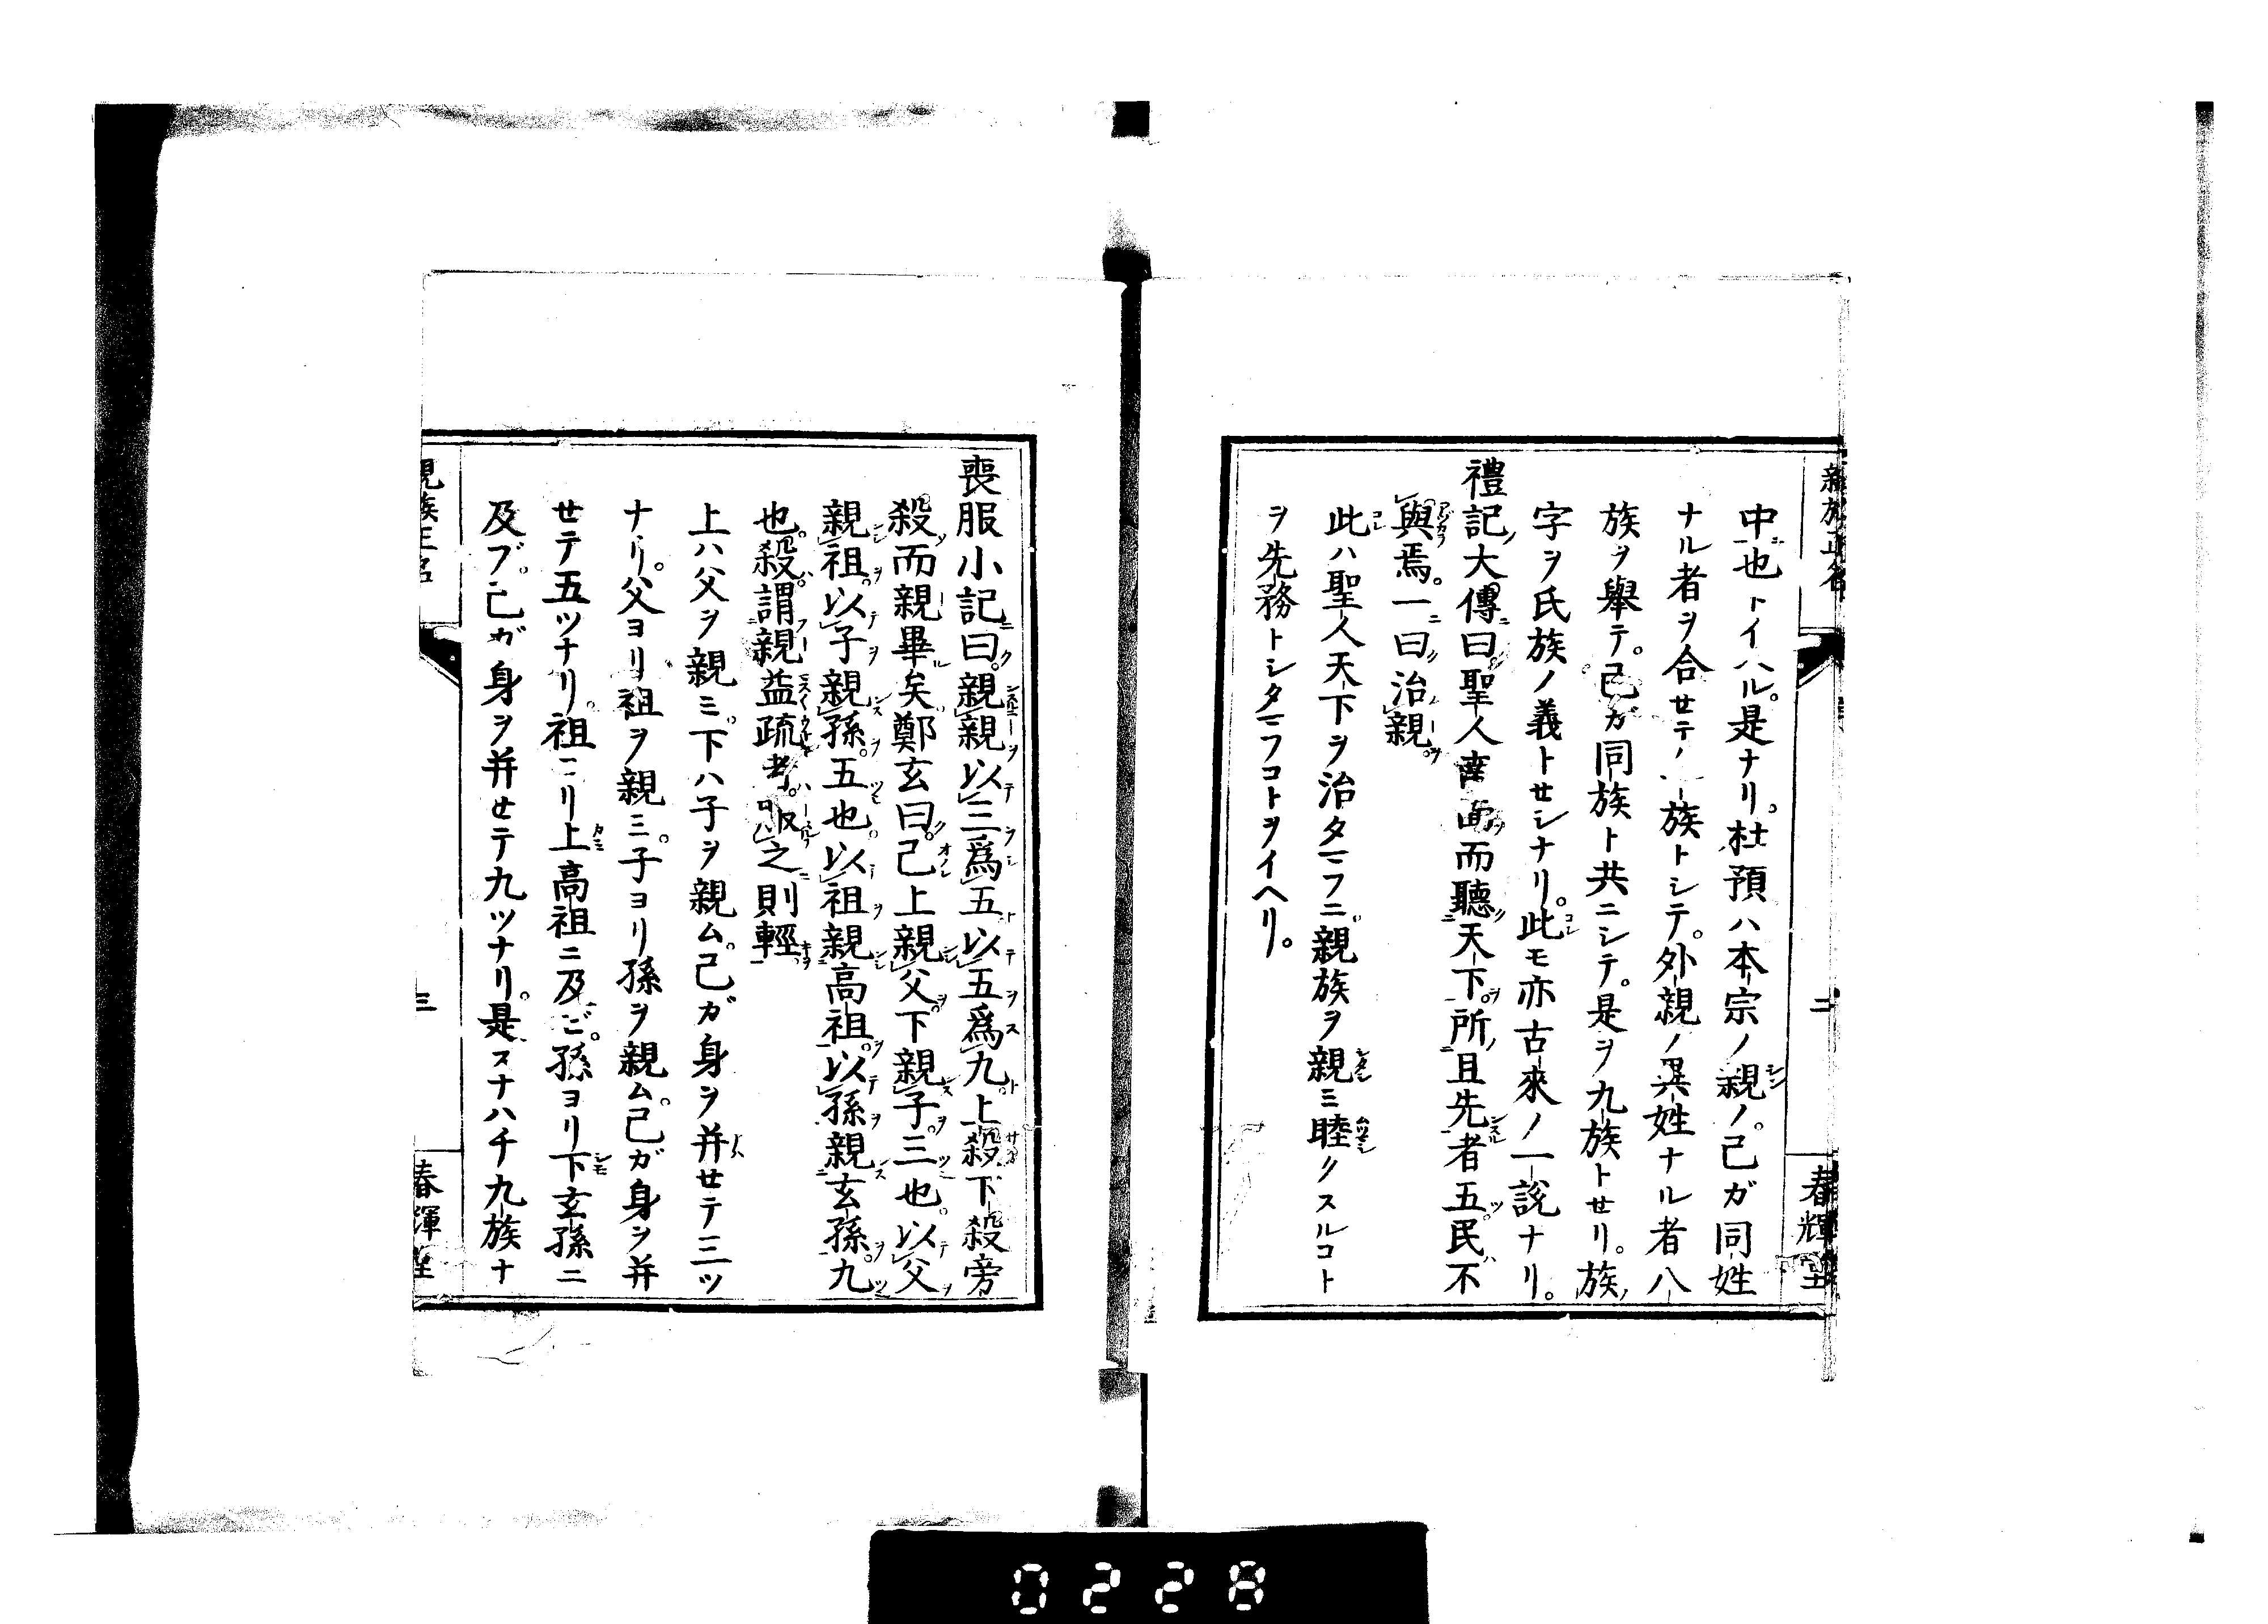 親族正名
二
春輝堂
中也トイハル。是ナリ。杜預ハ本宗ノ親ノ。己ガ同姓
ナル者ヲ合セテ一族トシテ。外親ノ異姓ナル者八
族ヲ舉テ。己ガ同族ト共ニシテ。是ヲ九族トセリ。族ノ
字ヲ氏族ノ義トセシナリ。此モ亦古來ノ一説ナリ。
禮記大傳曰。聖人南面而聽天下。所且先者五。民不
與焉。一曰治親。
此ハ聖人天下ヲ治タマフニ。親族ヲ親ミ睦クスルコト
ヲ先務トシタマフコトヲイヘリ。
喪服小記曰。親親以三爲五以五爲九。上殺下殺旁
殺而親畢矣。鄭玄曰。己上親父。下親子。三也。以父
親祖。以子親孫。五也。以祖親高祖。以孫親玄孫。九
也。殺謂親益疏者。服之則輕
上ハ父ヲ親ミ。下ハ子ヲ親ム。己ガ身ヲ并セテ三ツ
ナリ。父ヨリ祖ヲ親ミ。子ヨリ孫ヲ親ム。己ガ身ヲ并
セテ五ツナリ。祖ヨリ上高祖ニ及ビ。孫ヨリ下玄孫ニ
及ブ。己ガ身ヲ并セテ九ツナリ。是スナハチ九族ナ
親族正名
三
春輝堂
0228